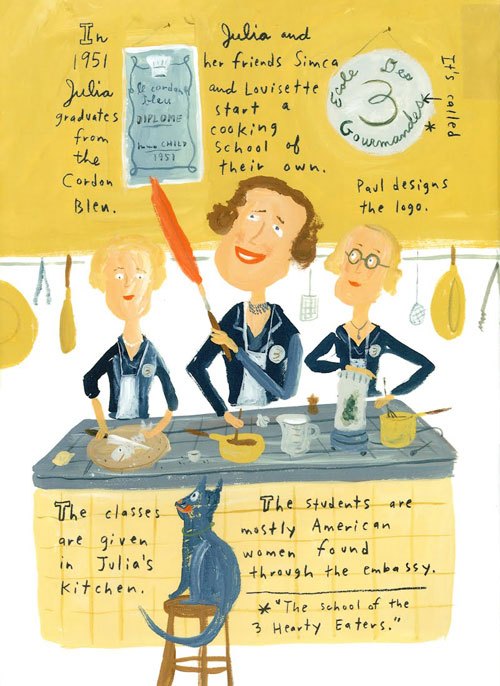 In
1951
Julia
graduates
from
the
Cordon
Bleu.
le cordon
bleu
DIPLOME
CHILD
1951
Julia and
her friends Simca
and Louisette
start a
cooking
School of
their own.
Ecole Des
3
Gourmandes
*
It's called
Paul designs
the logo.
3
3
3
The classes
are given
in Julia's
Kitchen.
The students are
mostly American
women found
through the embassy.
* "The school of the
3 Hearty Eaters."